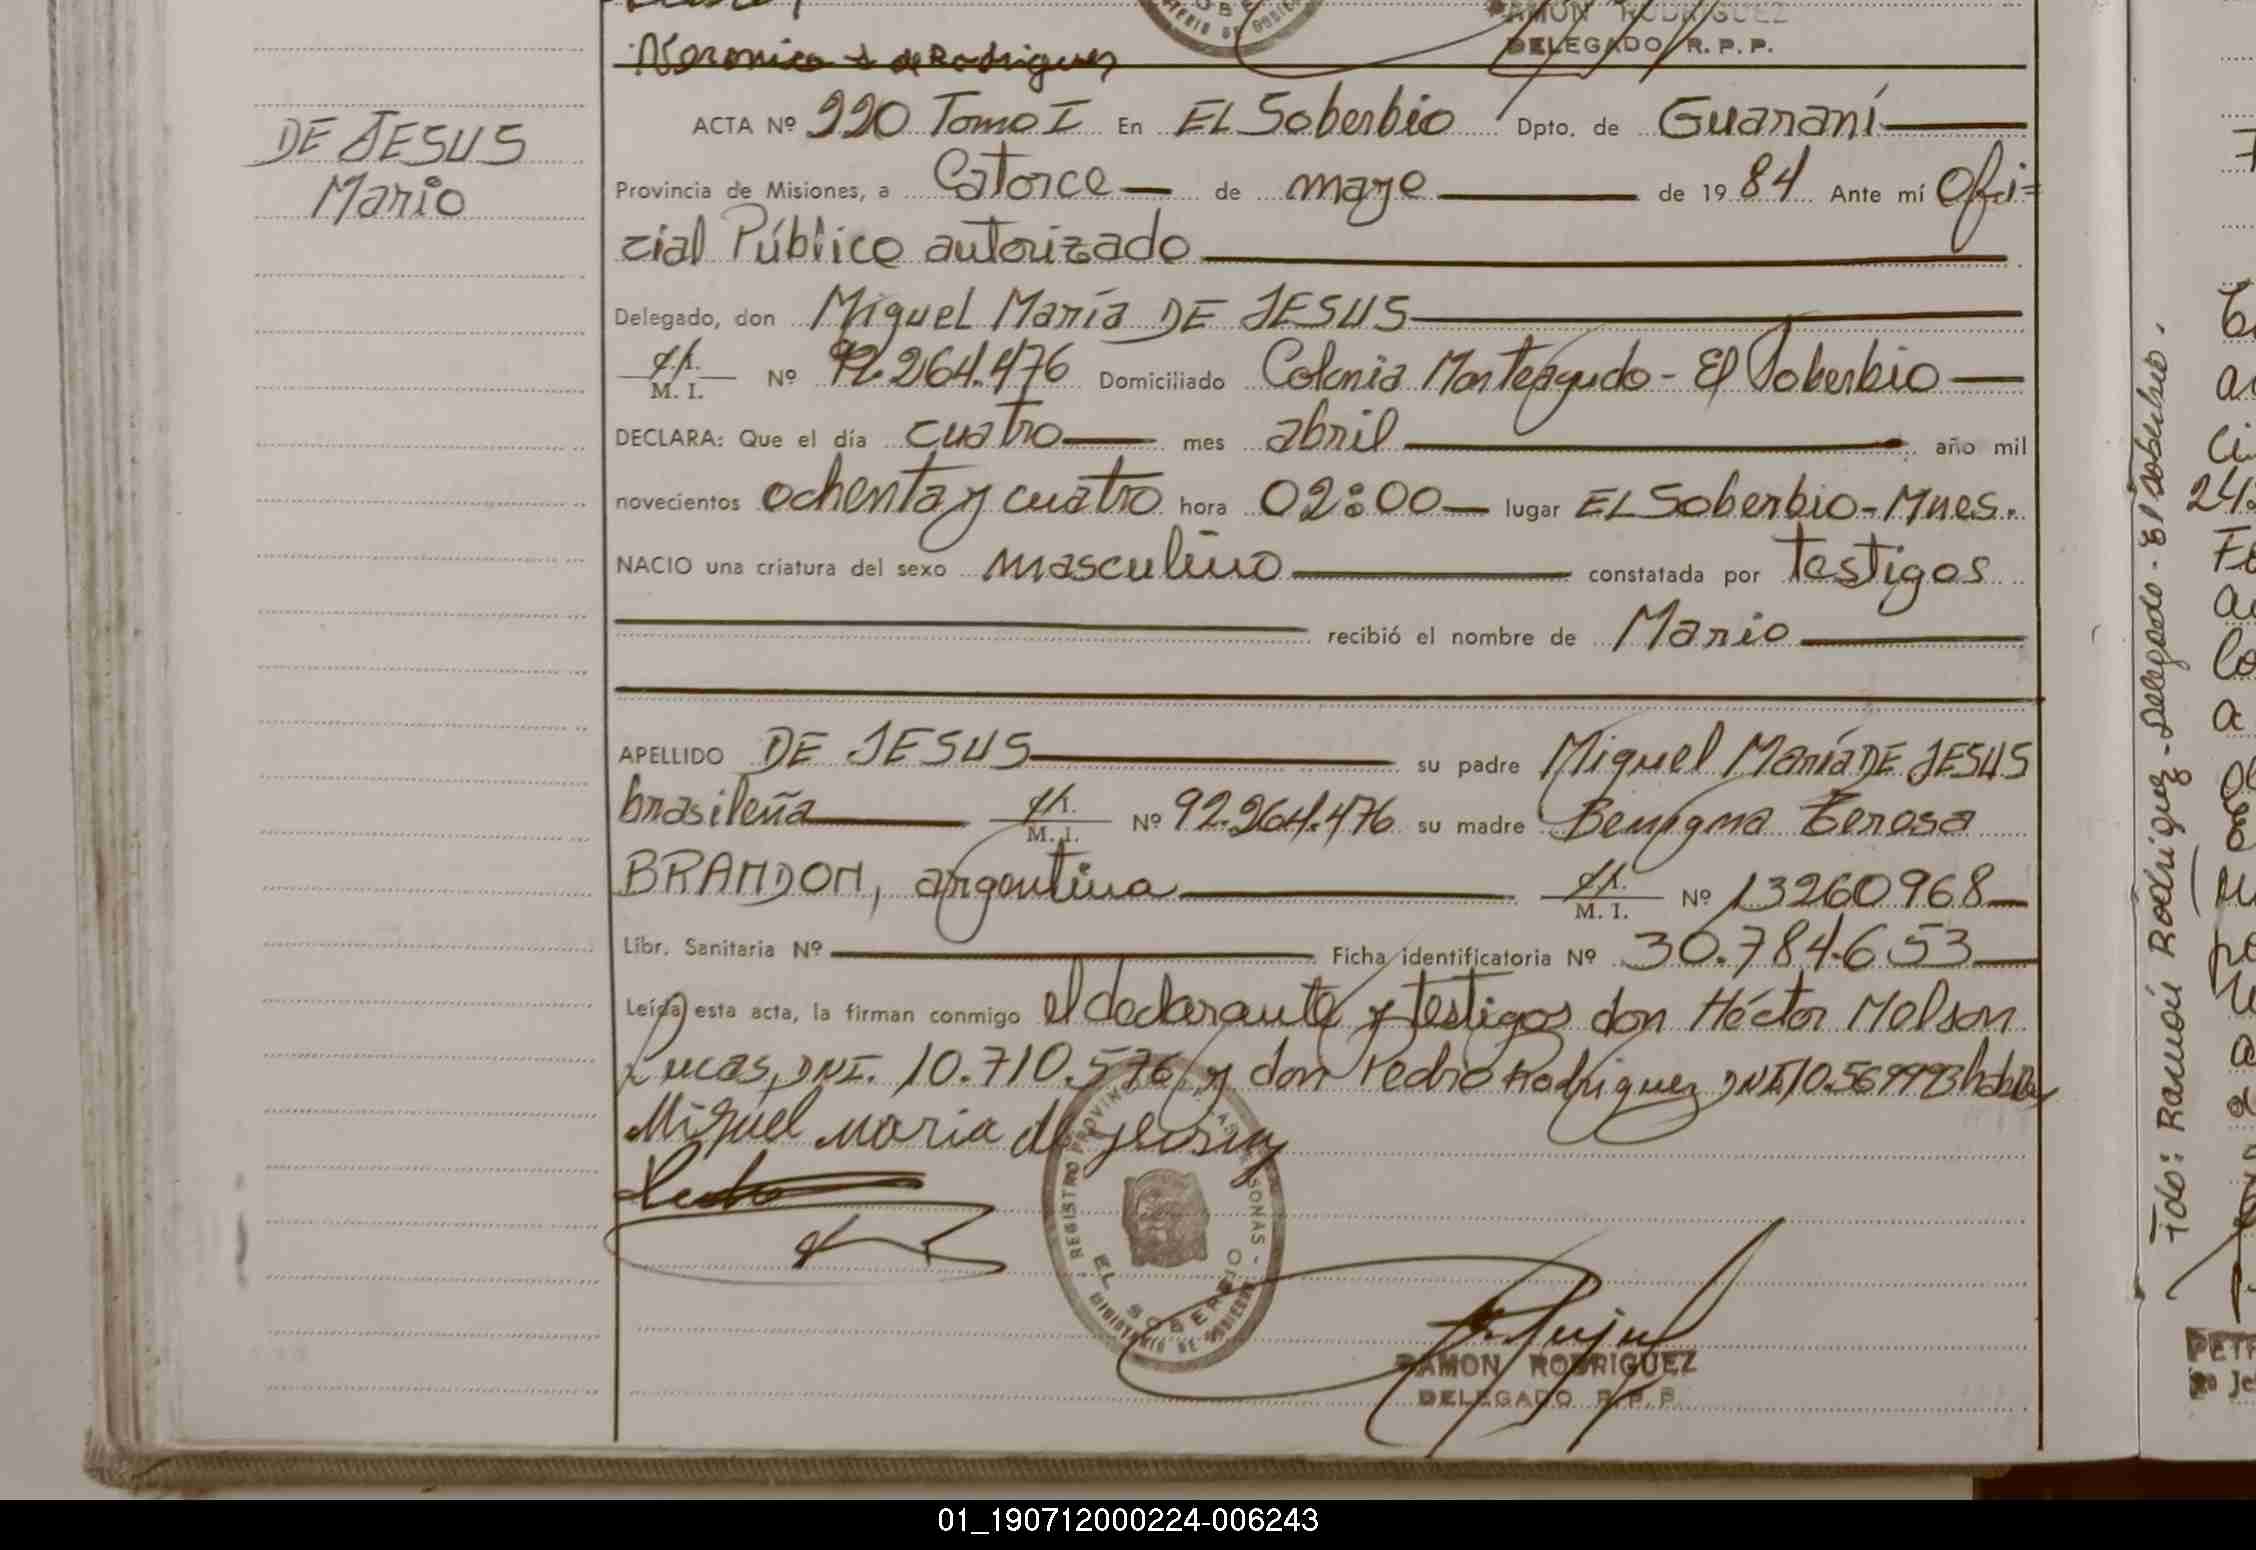 RAMON RODRIGUEZ
DELEGADO R. P. P.
DE JESUS
Mario
ACTA Nº 220 Tomo I En EL Soberbio Dpto. de Guaraní
Provincia de Misiones, a Catorce de mayo de 1984 Ante mí Ofi=
cial Público autorizado
Delegado, don Miguel María DE JESUS
M. I. Nº 92.264.476 Domiciliado Colonia Monteagudo - El Soberbio
DECLARA: Que el día cuatro mes abril año mil
novecientos ochenta y cuatro hora 02:00 lugar EL Soberbio - Mnes.
NACIO una criatura del sexo masculino constatada por testigos
recibió el nombre de Mario
APELLIDO DE JESUS su padre Miguel María DE JESUS
brasileña M. I. Nº 92.264.476 su madre Benigna Teresa
BRANDON, argentina M. I. Nº 13260968
Libr. Sanitaria Nº Ficha identificatoria Nº 30.784.653
Leída esta acta, la firman conmigo el declarante y testigos don Héctor Nelson
Lucas, DNI. 10.710.576 y don Pedro Rodriguez DNI 10.569993
Miguel maria de jesus
REGISTRO PROVINC
EL SOBERBIO
MINISTERIO DE GOBIERNO
RAMON RODRIGUEZ
DELEGADO R. P. P.
Fdo: Ramón Rodriguez - Delegado - El Soberbio.
01_190712000224-006243